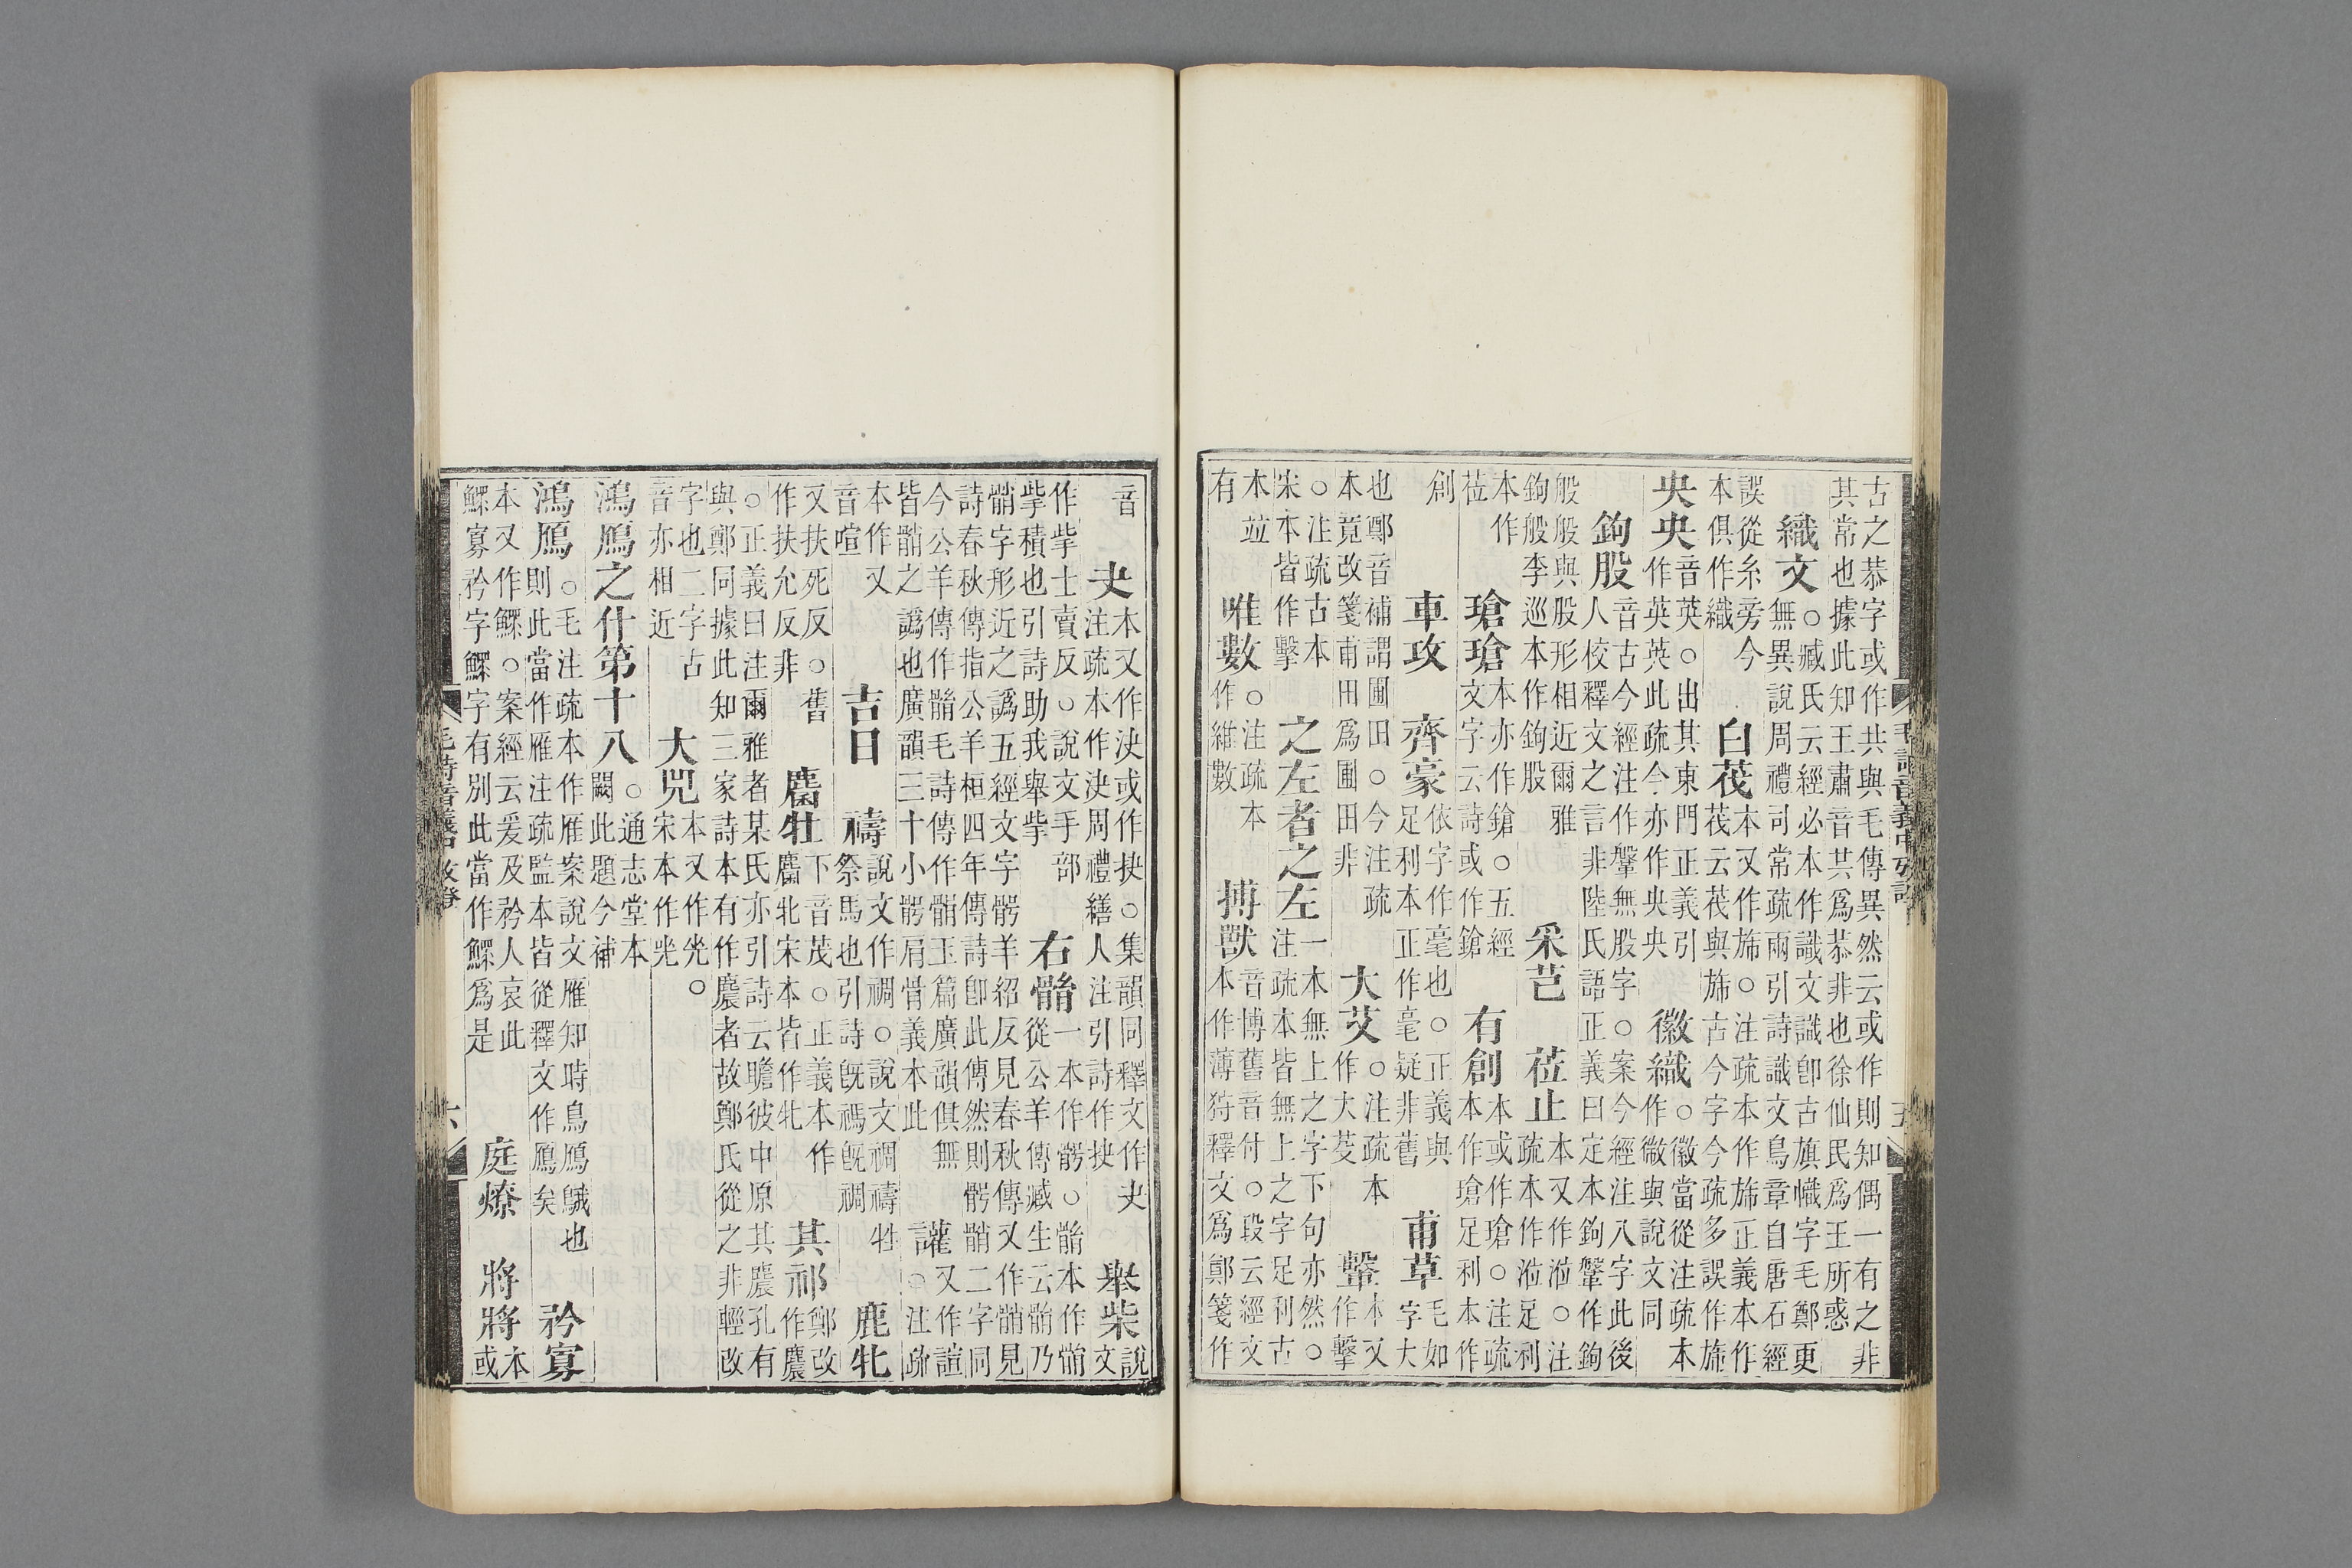 古之恭字或作共與毛傳異然云或作則知偶一有之非
其常也據此知王肅音其爲恭非也徐仙民爲王所惑
織文
○臧氏云經必本作識文識卽古旗幟字毛鄭更
無異說周禮司常疏兩引詩識文鳥章自唐石經
誤從糸旁今
本俱作織
白茷
本又作旆○注疏本作旆正義本作
茷云茷與旆古今字今疏多誤作旆
央央
音英○出其東門正義引
作英英此疏今亦作央央
徽織
○徽當從注疏本
作徽與說文同
鉤股
音古今經注作鞶無股字○案今經注八字此後
人校釋文之言非陸氏語正義曰定本鉤鞶作鉤
般般與股形相近爾雅
鉤般李巡本作鉤股
采芑
莅止
本又作涖○注
疏本作涖足利
本作
莅
瑲瑲
本亦作鎗○五經
文字云詩或作鎗
有創
本或作瑲○注疏
本作瑲足利本作
創
車攻
齊豪
依字作毫也○正義與
足利本正作毫疑非舊
甫草
毛如
字大
也鄭音補謂圃田○今注疏
本竟改箋甫田爲圃田非
大艾
○注疏本
作大芟
本又
作擊
○注疏古本
宋本皆作擊
之左者之左
一本無上之字下句亦然○
注疏本皆無上之字足利古
本竝
有
唯數
○注疏本
作維數
搏獸
音博舊音付○段云經文
本作薄狩釋文爲鄭箋作
毛詩音義中攷證
五
音
夬
本又作決或作抉○集韻同釋文作夬
注疏本作決周禮繕人注引詩作抉
舉柴
說
文
作㧘士賣反○說文手部
㧘積也引詩助我舉㧘
右
一本作
從公羊傳臧生云
字形近之譌五經文字
羊紹反見春秋傳又作
見
詩春秋傳指公羊桓四年傳詩卽此傳然則
二字同
今公羊傳作
毛詩傳作
玉篇廣韻俱無
皆
之譌也廣韻三十小
肩骨義本此
讙
又作諠
○注疏
本作又
音喧
吉日
禱
說文作禂○說文禂禱牲
祭馬也引詩旣禡旣禂
鹿牝
又扶死反○舊
作扶允反非
麕牡
下音茂○正義本作
麕牝宋本皆作牝
其祁
鄭改
作麎
○正義曰注爾雅者某氏亦引詩云瞻彼中原其麎孔有
與鄭同據此知三家詩本有作麎者故鄭氏從之非輕改
字也二字古
音亦相近
大兕
本又作𠒅○
宋本作𠒅
鴻鴈之什第十八
○通志堂本
闕此題今補
鴻鴈
○毛注疏本作雁案說文雁知時鳥鴈䳘也
則此當作雁注疏監本皆從釋文作鴈矣
矜寡
本又作鰥○案經云爰及矜人哀此
鰥寡矜字鰥字有別此當作鰥爲是
庭燎
將將
本
或
毛詩音義中攷證
六